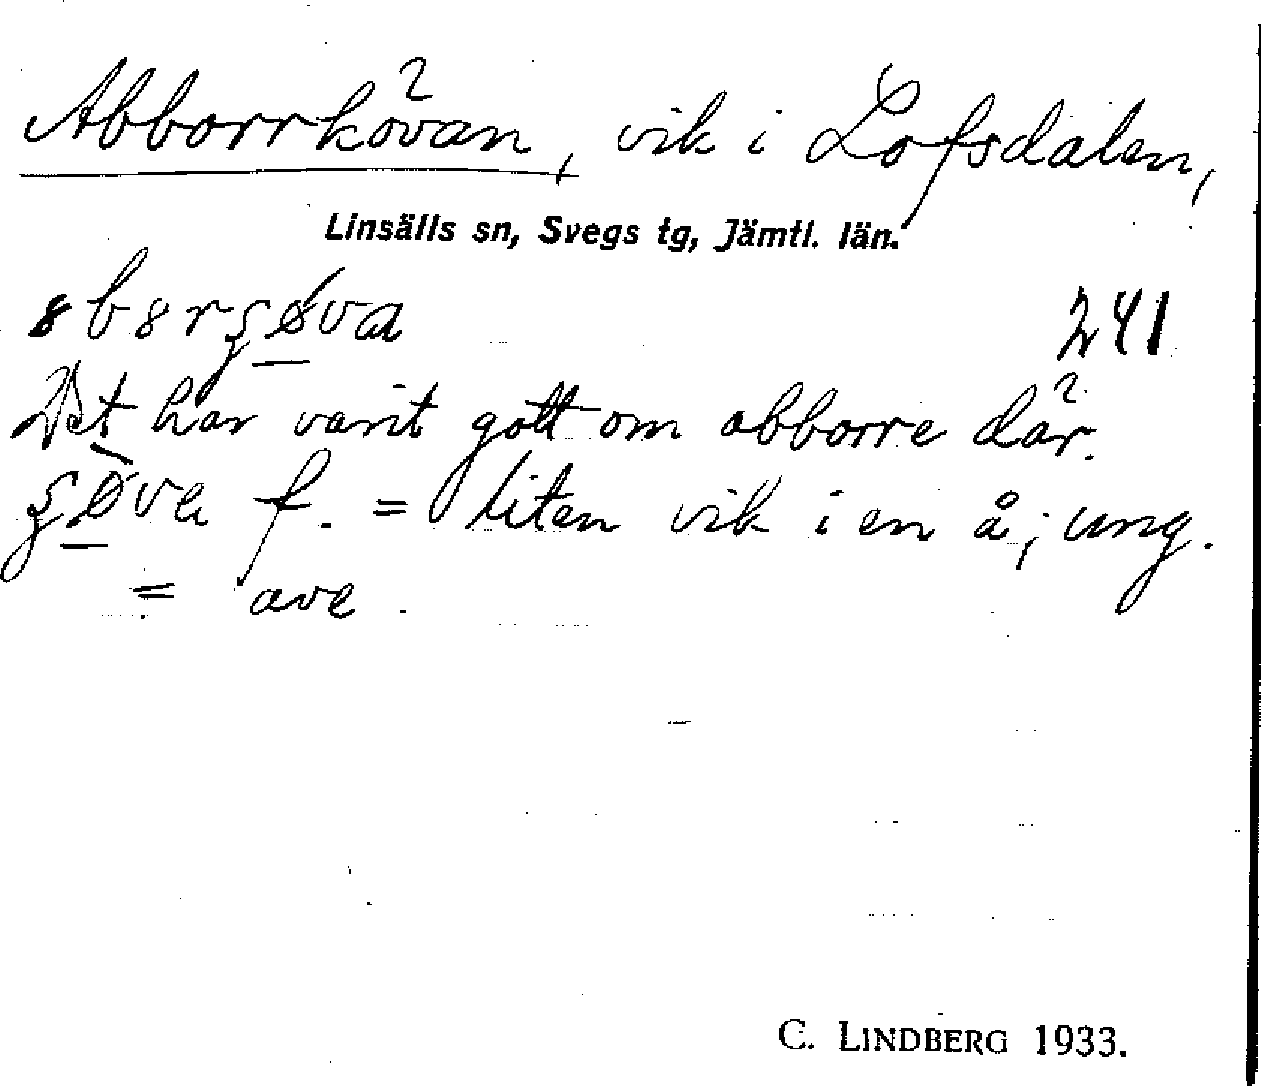 Abborrkövan, vik i Lofsdalen,
Linsälls sn, Svegs tg, Jämtl. län.
241
Det har varit gott om abborre där.
f. = liten vik i en å; ung.
= ave.
C. LINDBERG 1933.